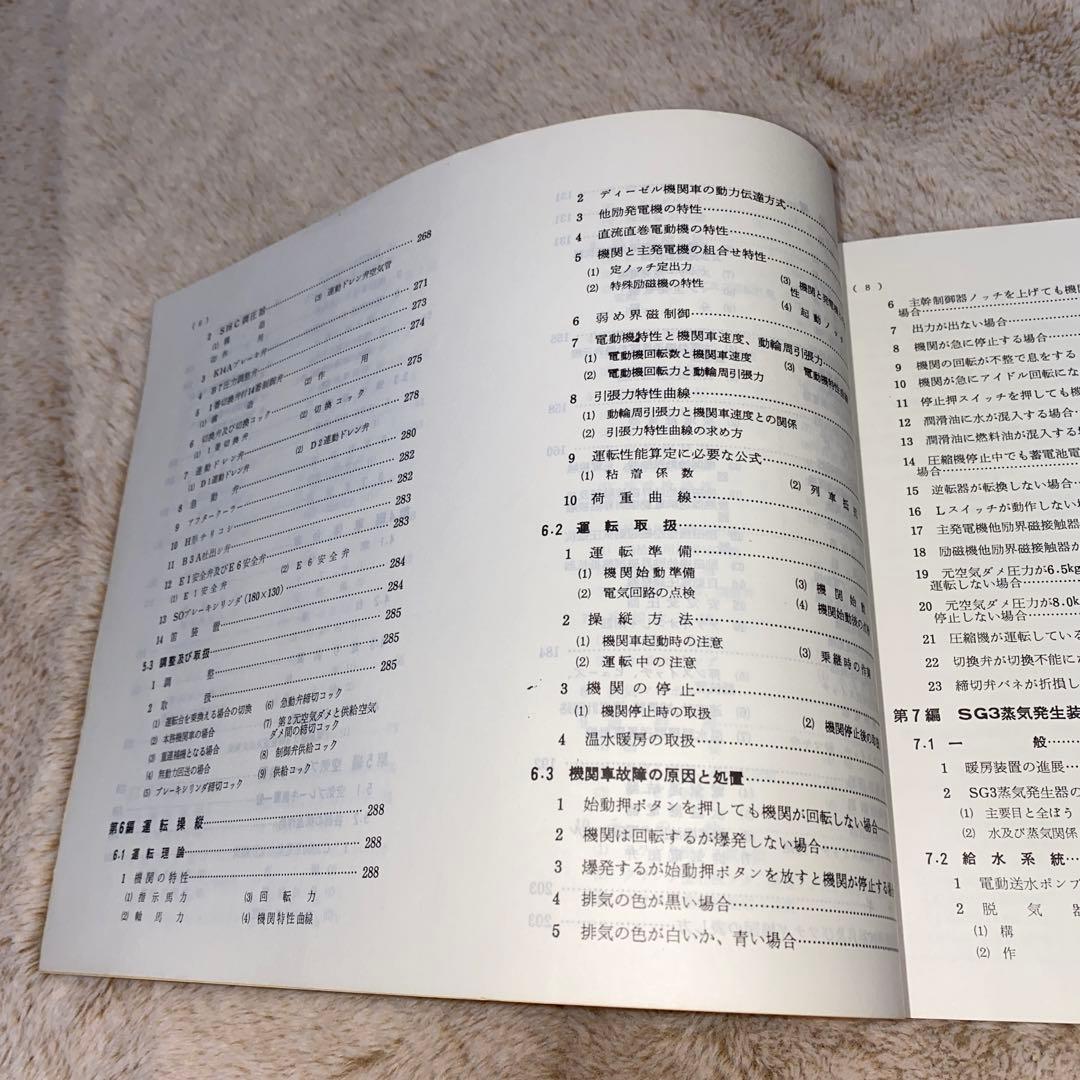 ( 6 )
(3) 運動ドレン弁空気管
2 SHC調圧器 268
(1) 構 造
(2) 作 用
3 KNAブレーキ弁 271
4 B7圧力調整弁 273
5 1番切換弁付14番制御弁 274
(1) 構 造 (2) 作 用
6 切換弁及び切換コック 275
(1) 1重切換弁 (2) 切換コック
7 運動ドレン弁 278
(1) D1運動ドレン弁 (2) D2運動ドレン弁
8 急動弁 280
9 アフタークーラー 282
10 H形チリコシ 282
11 B3A吐出シ弁 283
12 E1安全弁及びE6安全弁 283
(1) E1安全弁 (2) E6安全弁
13 SOブレーキシリンダ(180×130) 284
14 笛装置 284
5-3 調整及び取扱 285
1 調 整 285
2 取 扱 285
(1) 運転台を乗換える場合の切換 (6) 急動弁締切コック
(2) 本務機関車の場合 (7) 第2元空気ダメと供給空気ダメ間の締切コック
(3) 重連補機となる場合 (8) 制御弁供給コック
(4) 無動力回送の場合 (9) 供給コック
(5) ブレーキシリンダ締切コック
第6編 運転操縦 288
6-1 運転理論 288
1 機関の特性 288
(1) 指示馬力 (3) 回転力
(2) 軸馬力 (4) 機関特性曲線
2 ディーゼル機関車の動力伝達方式
3 他励発電機の特性
4 直流直巻電動機の特性
5 機関と主発電機の組合せ特性
(1) 定ノッチ定出力 (3) 機関と発電機
(2) 特殊励磁機の特性 性
(4) 起動ノッ
6 弱め界磁制御
7 電動機特性と機関車速度、動輪周引張力
(1) 電動機回転数と機関車速度 (3) 電動機特性曲線
(2) 電動機回転力と動輪周引張力
8 引張力特性曲線
(1) 動輪周引張力と機関車速度との関係
(2) 引張力特性曲線の求め方
9 運転性能算定に必要な公式
(1) 粘着係数 (2) 列車抵抗
10 荷重曲線
6.2 運転取扱
1 運転準備
(1) 機関始動準備 (3) 機関始動
(2) 電気回路の点検 (4) 機関始動後の点検
2 操縦方法
(1) 機関車起動時の注意 (3) 乗継時の作業
(2) 運転中の注意
3 機関の停止
(1) 機関停止時の取扱 (2) 機関停止後の取扱
4 温水暖房の取扱
6.3 機関車故障の原因と処置
1 始動押ボタンを押しても機関が回転しない場合
2 機関は回転するが爆発しない場合
3 爆発するが始動押ボタンを放すと機関が停止する場合
4 排気の色が黒い場合
5 排気の色が白いか、青い場合
( 8 )
6 主幹制御器ノッチを上げても機関
場合
7 出力が出ない場合
8 機関が急に停止する場合
9 機関の回転が不整で息をする
10 機関が急にアイドル回転にな
11 停止押スイッチを押しても機
12 潤滑油に水が混入する場合
13 潤滑油に燃料油が混入する場
14 圧縮機停止中でも蓄電池電
場合
15 逆転器が転換しない場合
16 Lスイッチが動作しない場
17 主発電機他励界磁接触器
18 励磁機他励界磁接触器が
19 元空気ダメ圧力が6.5kg
運転しない場合
20 元空気ダメ圧力が8.0k
停止しない場合
21 圧縮機が運転している
22 切換弁が切換不能にな
23 締切弁バネが折損し
第7編 SG3蒸気発生装
7.1 一 般
1 暖房装置の進展
2 SG3蒸気発生器の
(1) 主要目と全ぼう
(2) 水及び蒸気関係
7.2 給水系統
1 電動送水ポンプ
2 脱気器
(1) 構
(2) 作